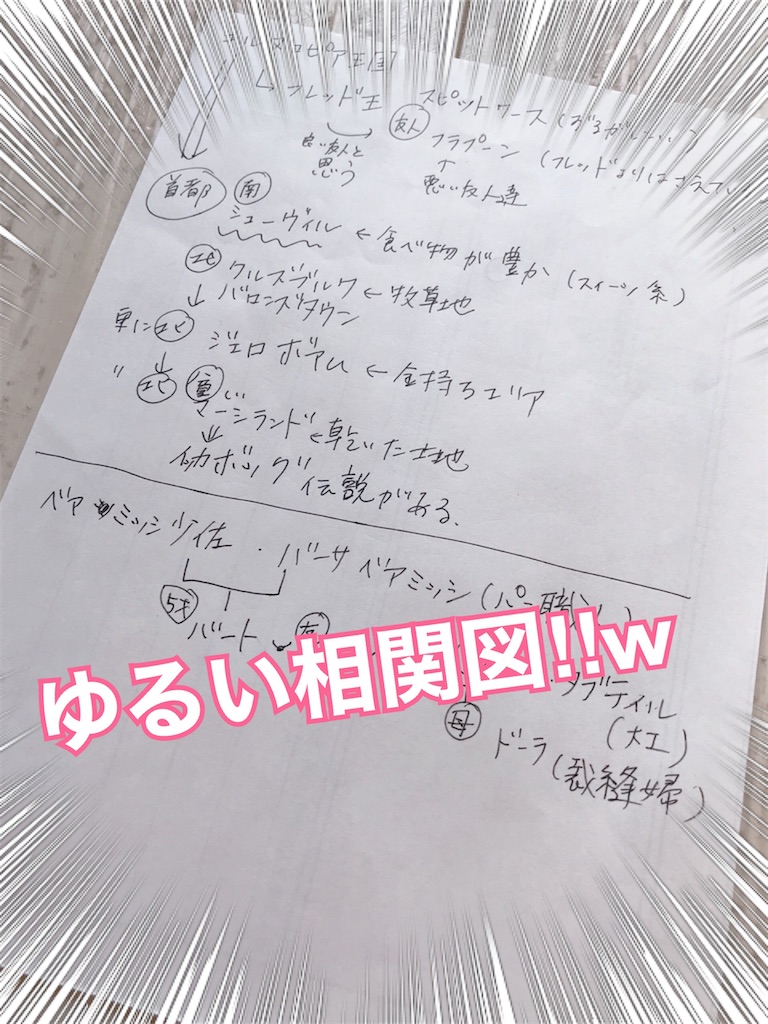 コルヌコピア王国
↳ フレッド王
スピットワース(ずるがしこい)
友人
フラプーン(フレッドよりはさえてい
良い友人と思う
悪い友人達
首都
南
シューヴィル ← 食べ物が豊か(スイーツ系)
北 クルズブルク
↓ バロンズタウン ← 牧草地
更に北 ジェロボアム ← 金持ちエリア
↓
〃 北 貧しい
マーシランド ← 乾いた土地
↓
イカボッグ伝説がある。
ベアミッシュ少佐・バーサ ベアミッシ(パン職人)
5才
バート
友
ゆるい相関図!!w
・ダブテイル
(大工)
母
ドーラ(裁縫婦)